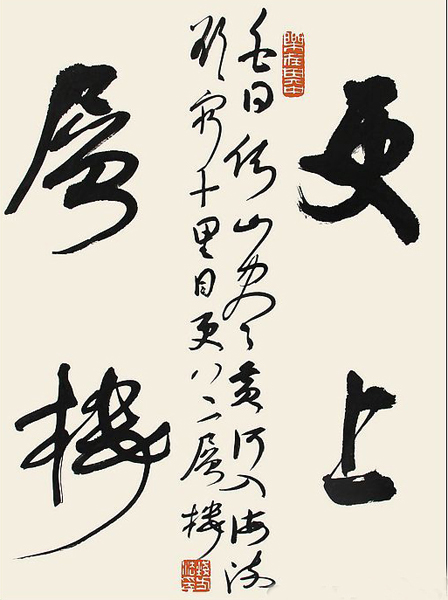 更上
樂在其中
白日依山盡黃河入海流
欲窮千里目更上一層樓
層樓